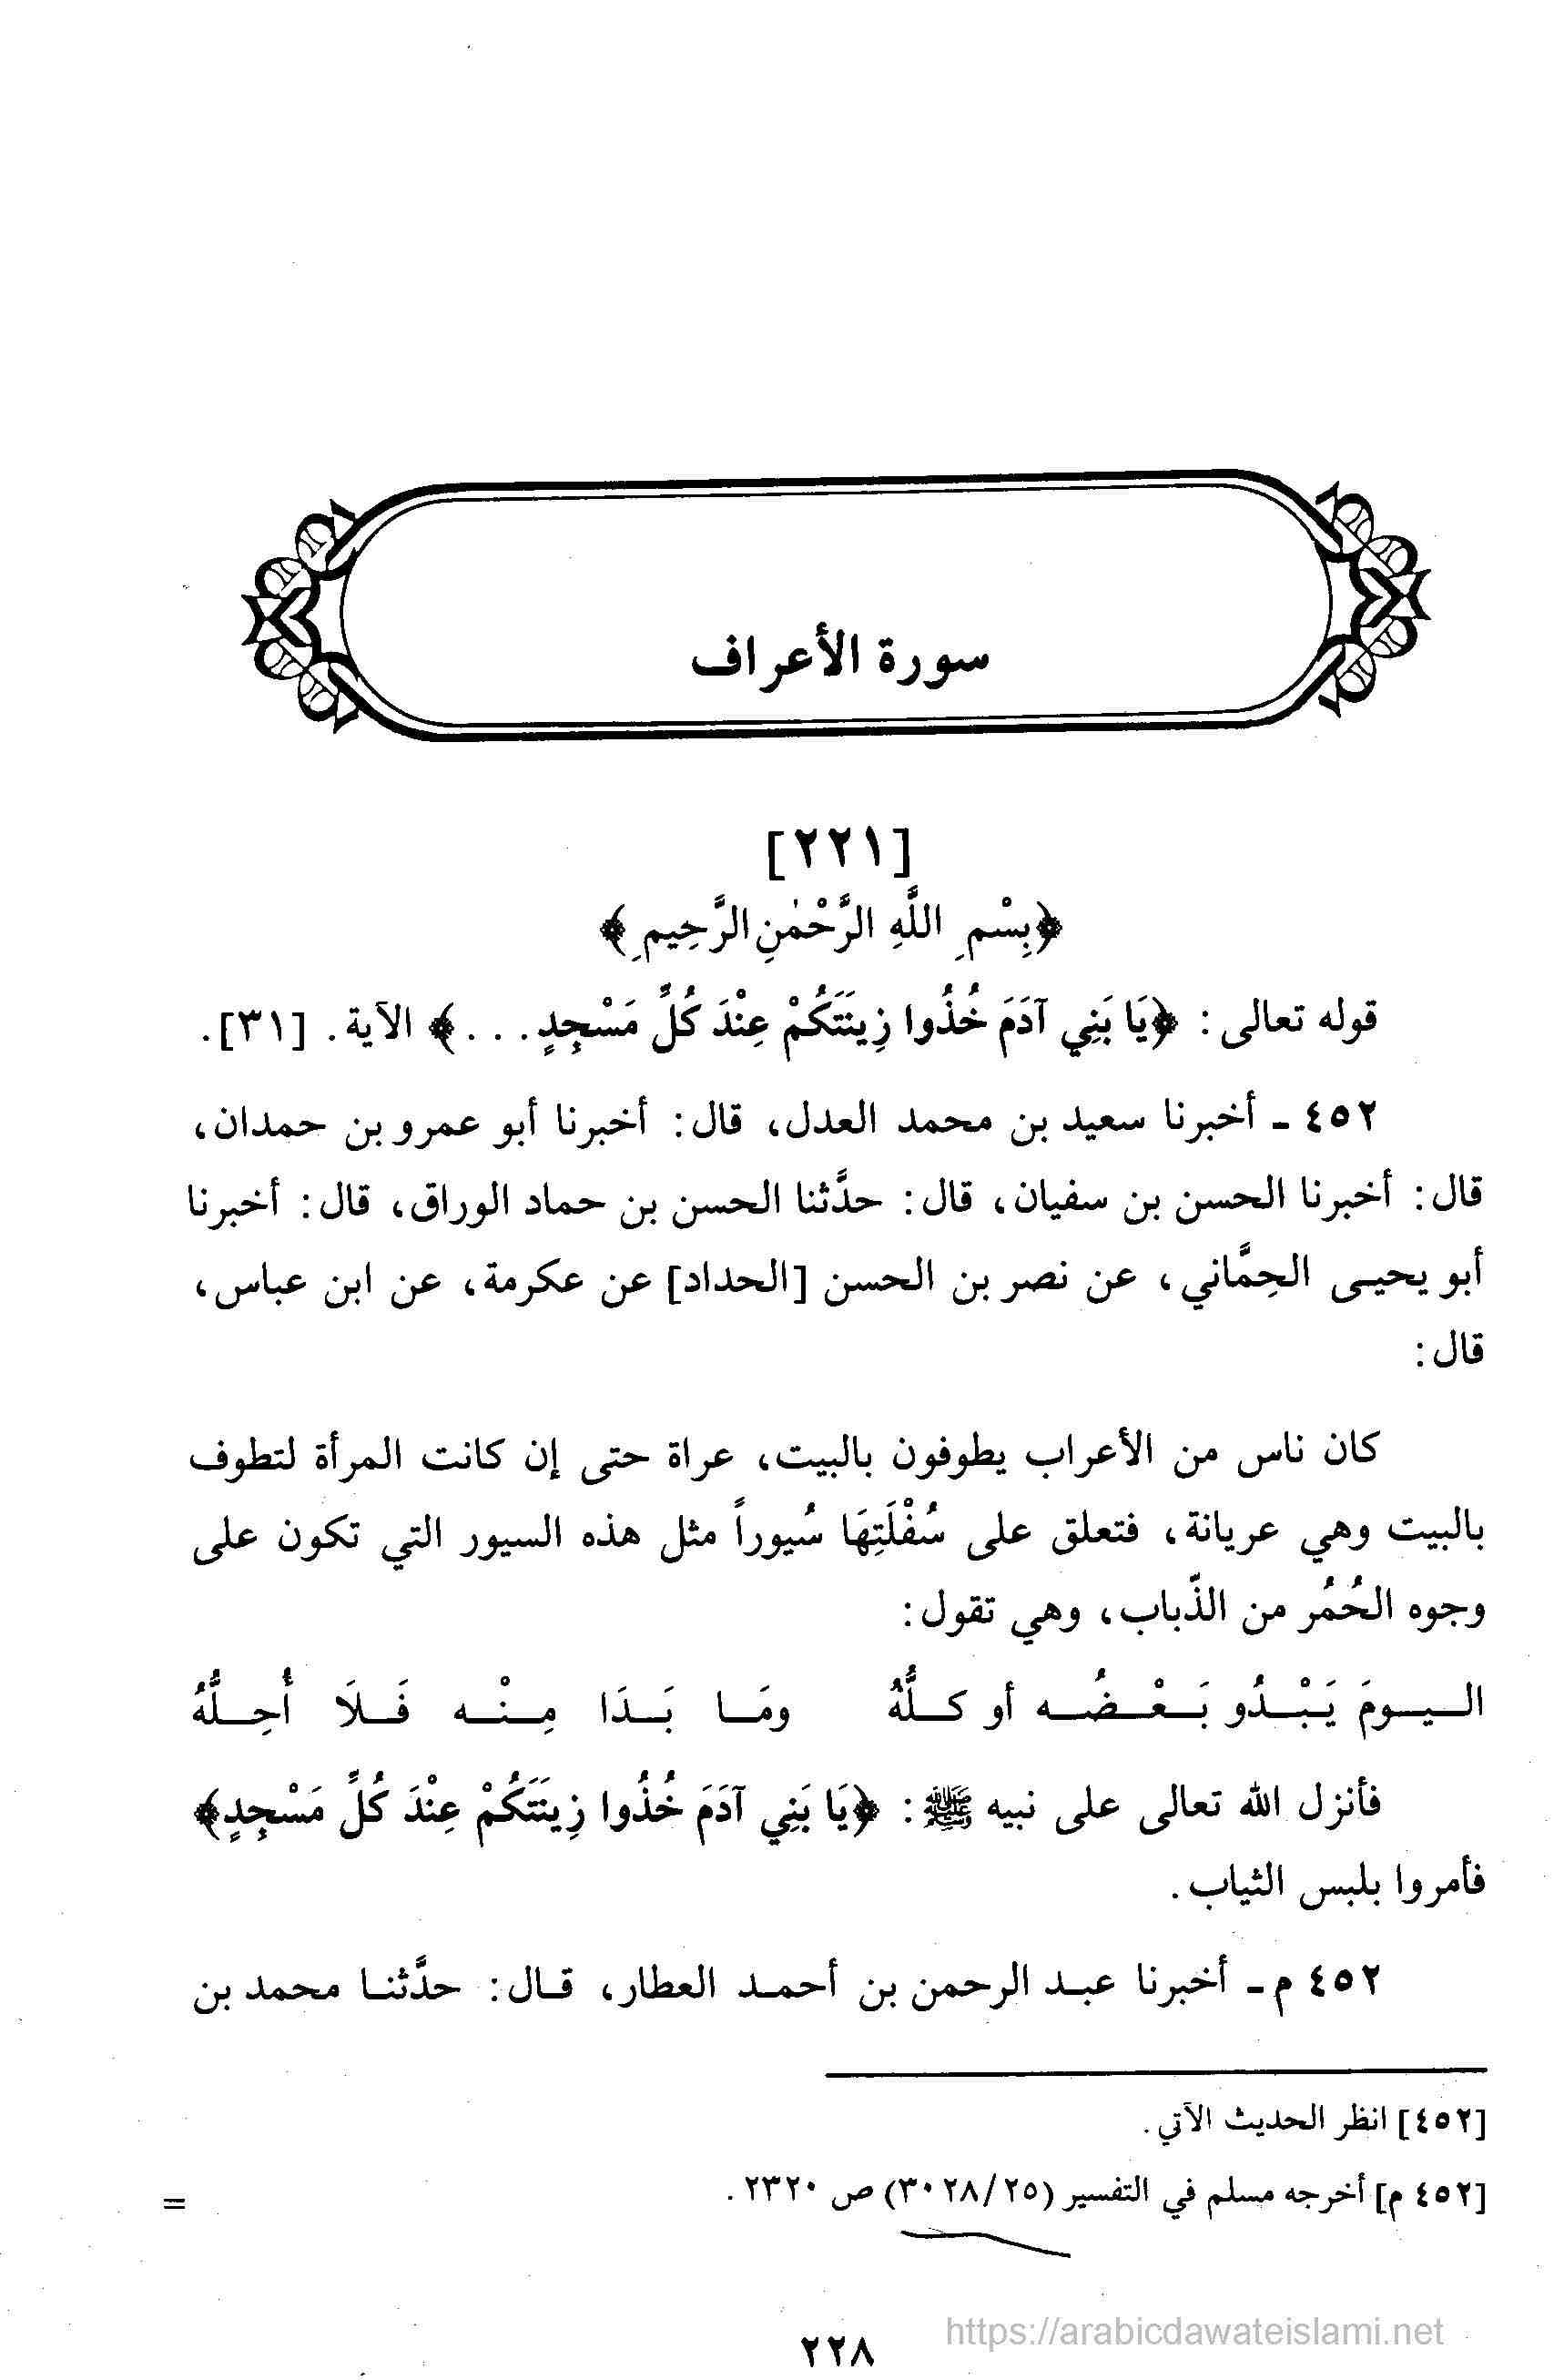 سورة الأعراف
[٢٢١]
﴿بِسْمِ اللَّهِ الرَّحْمٰنِ الرَّحِيمِ﴾
قوله تعالى: ﴿يَا بَنِي آدَمَ خُذُوا زِينَتَكُمْ عِنْدَ كُلِّ مَسْجِدٍ...﴾ الآية. [٣١].
٤٥٢ ـ أخبرنا سعيد بن محمد العدل، قال: أخبرنا أبو عمرو بن حمدان،
قال: أخبرنا الحسن بن سفيان، قال: حدَّثنا الحسن بن حماد الوراق، قال: أخبرنا
أبو يحيى الحِمَّاني، عن نصر بن الحسن [الحداد] عن عكرمة، عن ابن عباس،
قال:
كان ناس من الأعراب يطوفون بالبيت، عراة حتى إن كانت المرأة لتطوف
بالبيت وهي عريانة، فتعلق على سُفْلَتِهَا سُيوراً مثل هذه السيور التي تكون على
وجوه الحُمُر من الذّباب، وهي تقول:
اليومَ يَبْدُو بَعْضُه أو كلُّهُ ومَا بَدَا مِنْه فَلَا أُحِلُّهُ
فأنزل الله تعالى على نبيه ﷺ: ﴿يَا بَنِي آدَمَ خُذُوا زِينَتَكُمْ عِنْدَ كُلِّ مَسْجِدٍ﴾
فأمروا بلبس الثياب.
٤٥٢ م ـ أخبرنا عبد الرحمن بن أحمد العطار، قال: حدَّثنا محمد بن
[٤٥٢] انظر الحديث الآتي.
[٤٥٢ م] أخرجه مسلم في التفسير (٣٠٢٨/٢٥) ص ٢٣٢٠.
=
٢٢٨
https://arabicdawateislami.net